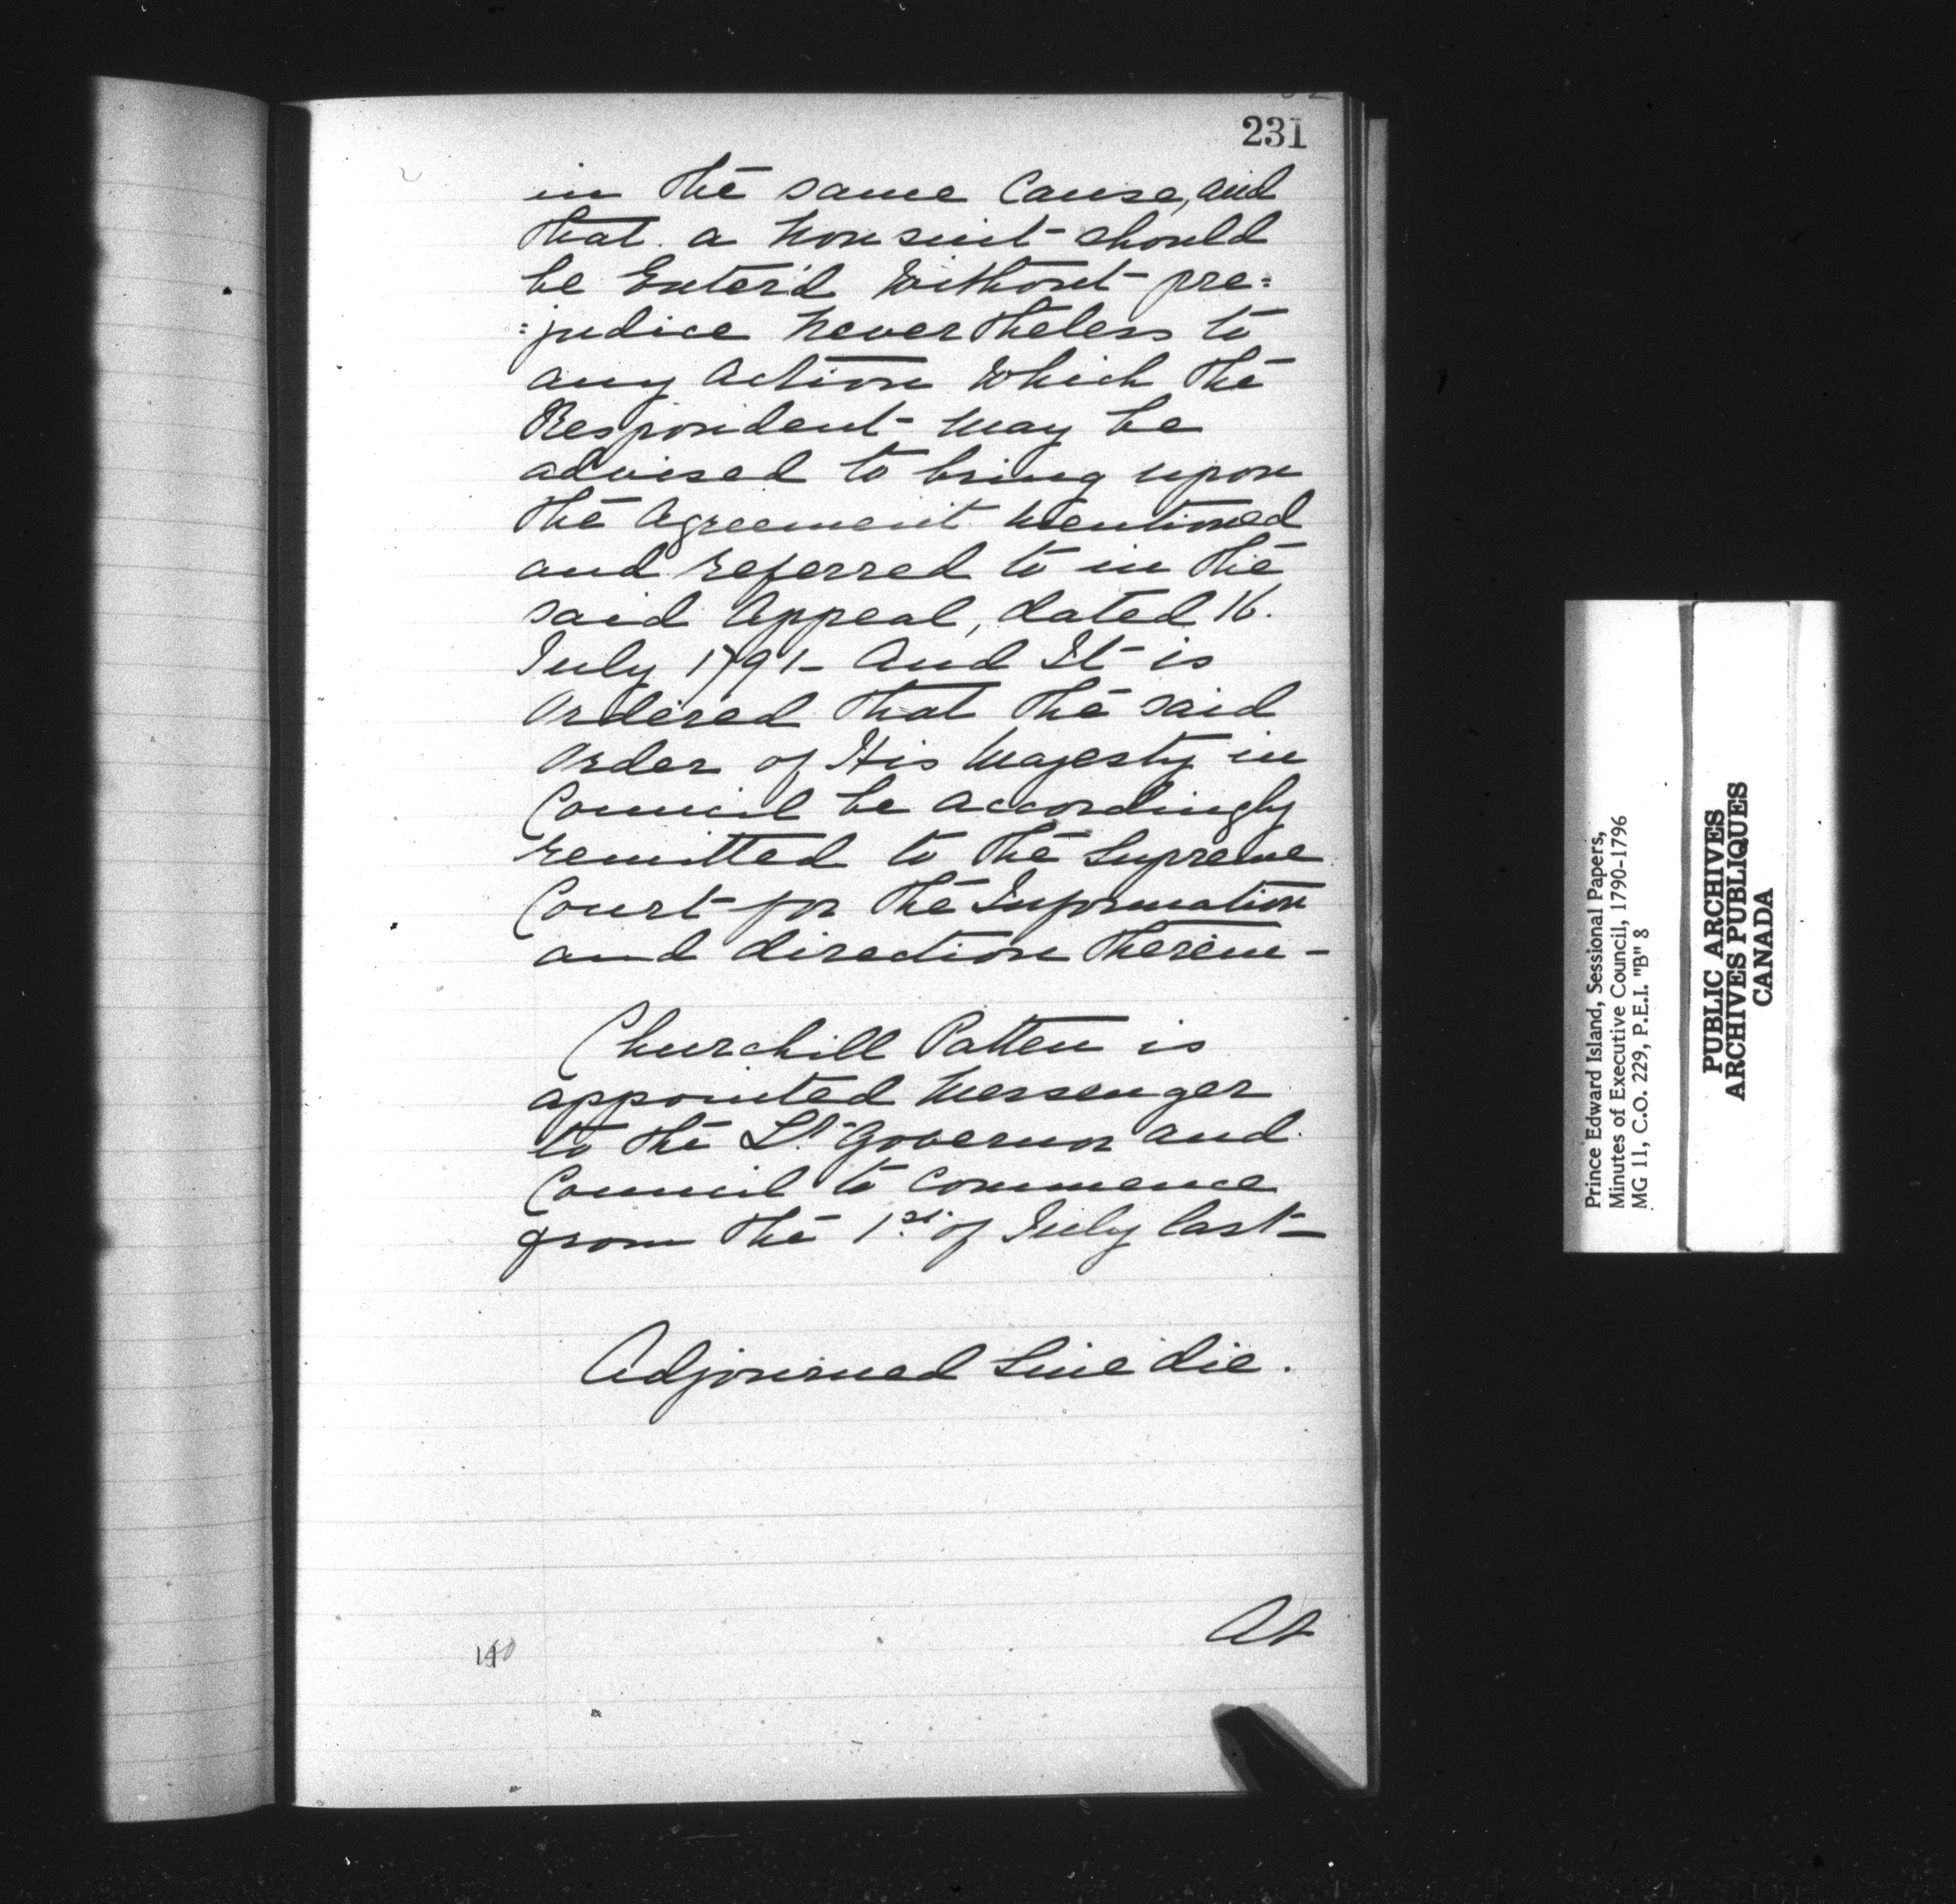 231
in the same Cause, and
that a Nonsuit should
be Enter'd Without pre=
=judice Nevertheless to
any Action Which the
Respondent may be
advised to bring upon
the Agreement Mentioned
and referred to in the
said Appeal, dated 16.
July 1791 - And It is
Ordered that the said
Order of His Majesty in
Council be accordingly
remitted to the Supreme
Court for the Information
and direction therein -
Churchill Patten is
appointed Messenger
to the Lt. Governor and
Council to Commence
from the 1st. of July last -
Adjourned Sine die.
At
Prince Edward Island, Sessional Papers,
Minutes of Executive Council, 1790-1796
MG 11, C.O. 229, P.E.I. "B" 8
PUBLIC ARCHIVES
ARCHIVES PUBLIQUES
CANADA